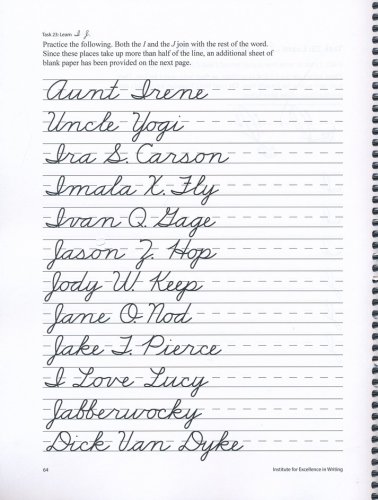 Task 23: Learn I J.
Practice the following. Both the I and the J join with the rest of the word.
Since these places take up more than half of the line, an additional sheet of
blank paper has been provided on the next page.
Aunt Irene
Uncle Yogi
Ira S. Carson
Imala X. Fly
Ivan Q. Gage
Jason Z. Hop
Jody W. Keep
Jane O. Nod
Jake T. Pierce
I Love Lucy
Jabberwocky
Dick Van Dyke
64
Institute for Excellence in Writing